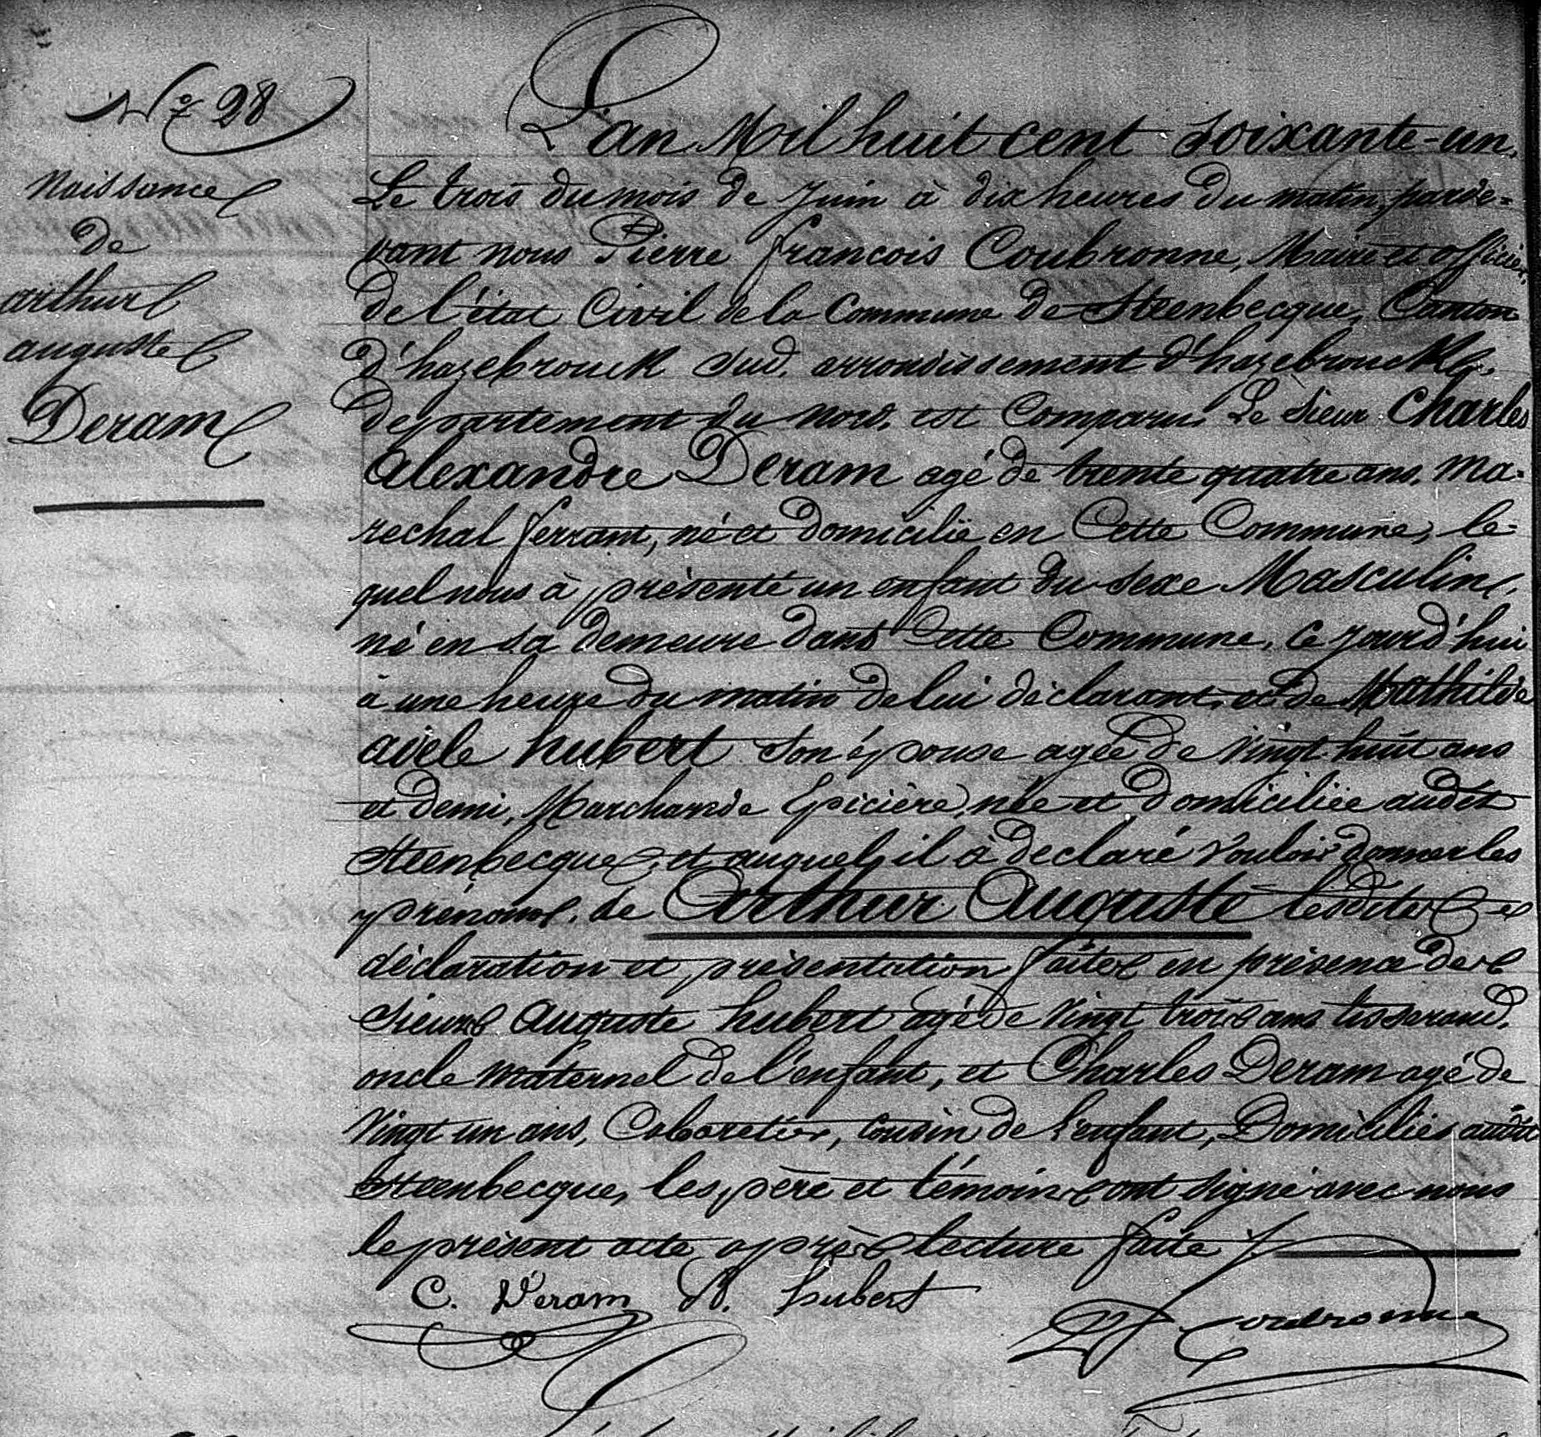 N.º 28
Naissance
de
arthur
auguste
Deram
L'an Mil huit cent soixante-un,
Le trois du mois de Juin à dix heures du matin, parde-
vant nous Pierre françois Coubronne, Maire et officier
de l'état Civil de la Commune de Steenbecque, Canton
d'hazebrouck sud, arrondissement d'hazebrouck,
département du nord, est Comparu Le Sieur Charles
alexandre Deram agé de trente quatre ans, ma-
rechal ferrant, né et domicilié en Cette Commune, le-
quel nous à présenté un enfant du sexe Masculin,
né en sa demeure dans Cette Commune, ce jourd'hui
à une heure du matin de lui déclarant, et de Mathilde
adele hubert son épouse agée de vingt huit ans
et demi, Marchande Epicière, née et domiciliée audit
Steenbecque, et auquel il à declaré vouloir donner les
prénoms de Arthur Auguste lesdites
déclaration et présentation faites en présence des
Sieurs Auguste hubert agé de vingt trois ans tisserand,
oncle maternel de l'enfant, et Charles Deram agé de
Vingt un ans, Cabaretier, cousin de l'enfant, Domiciliés audit
Steenbecque, les père et témoins ont signé avec nous
le présent acte après lecture faite
C. Deram A. hubert
Coubronne